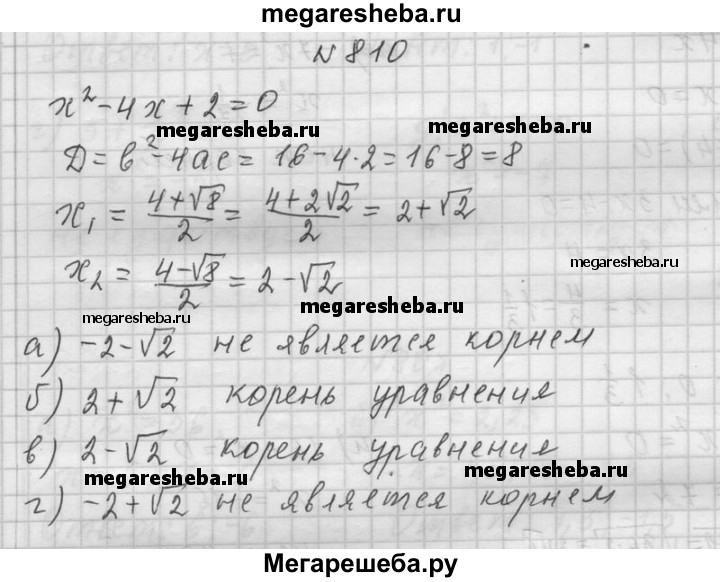 megaresheba.ru
№ 810
x² - 4x + 2 = 0
megaresheba.ru megaresheba.ru
D = b² - 4ac = 16 - 4·2 = 16 - 8 = 8
x₁ = (4+√8)/2 = (4+2√2)/2 = 2+√2
x₂ = (4-√8)/2 = 2-√2
megaresheba.ru
megaresheba.ru megaresheba.ru
а) -2-√2 не является корнем
б) 2+√2 корень уравнения
в) 2-√2 корень уравнения
megaresheba.ru megaresheba.ru
г) -2+√2 не является корнем
Мегарешеба.ру